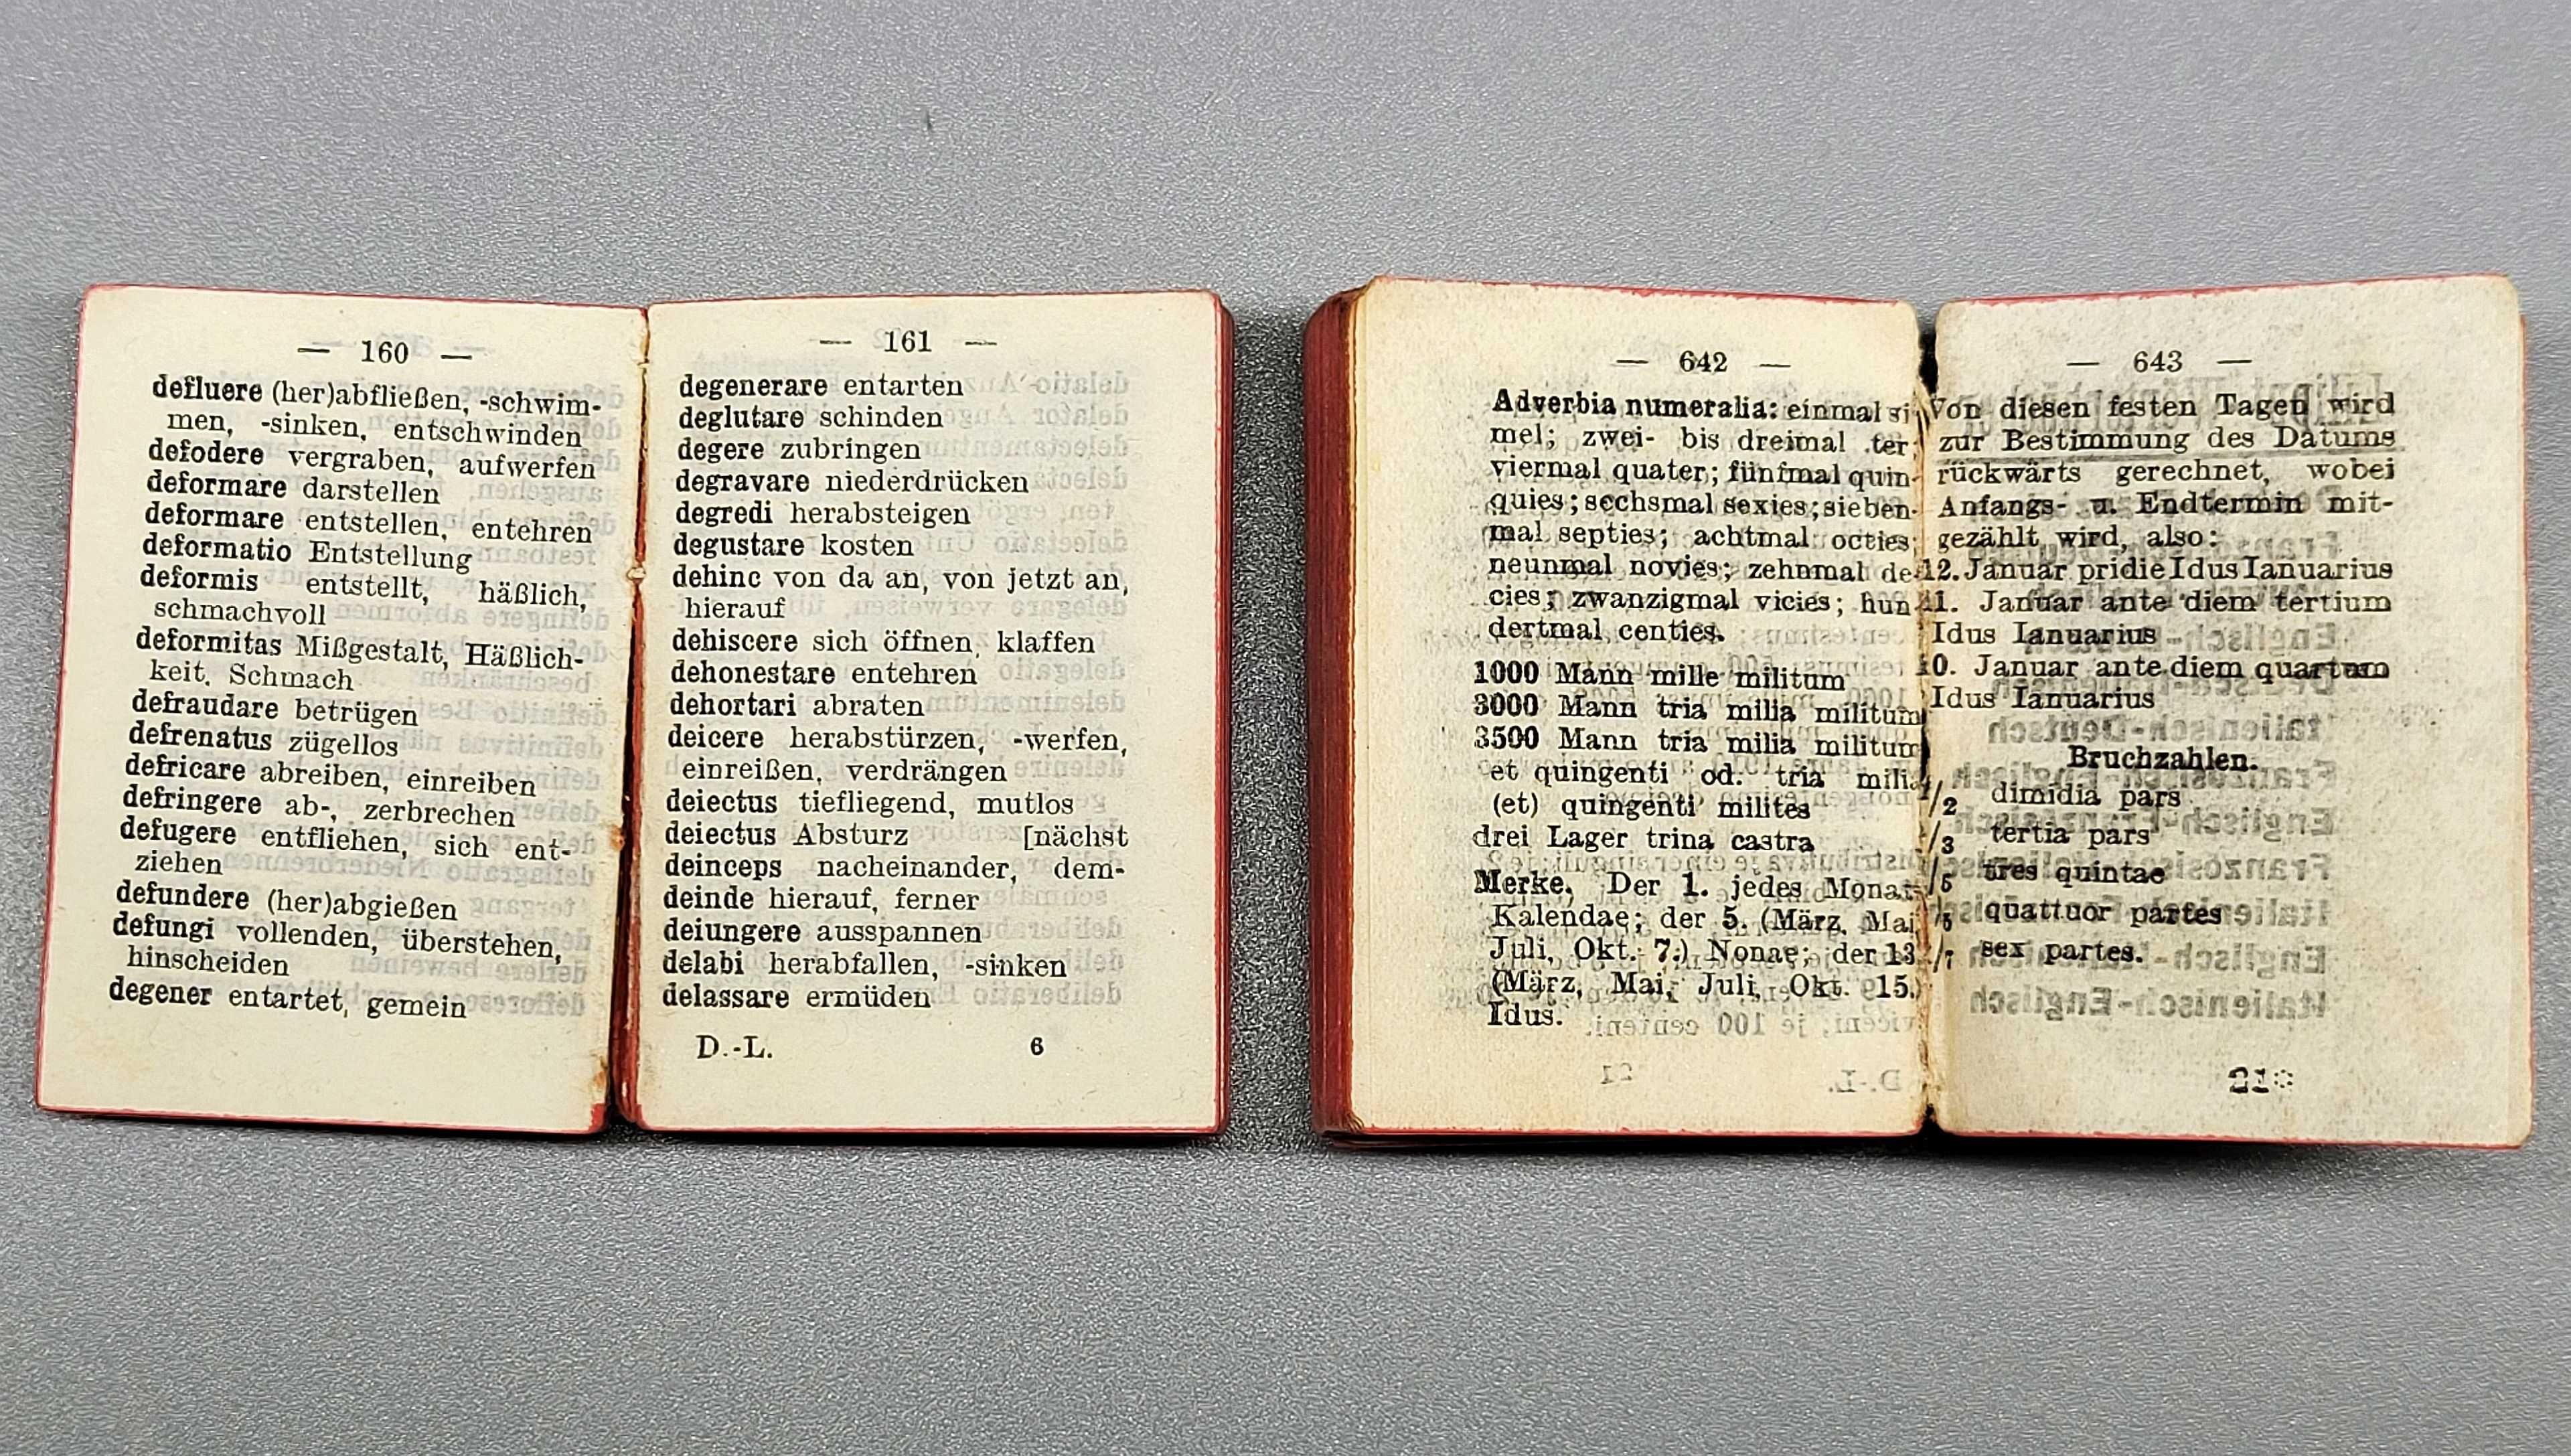 — 160 —
defluere (her)abfließen, -schwim-
men, -sinken, entschwinden
defodere vergraben, aufwerfen
deformare darstellen
deformare entstellen, entehren
deformatio Entstellung
deformis entstellt, häßlich,
schmachvoll
deformitas Mißgestalt, Häßlich-
keit, Schmach
defraudare betrügen
defrenatus zügellos
defricare abreiben, einreiben
defringere ab-, zerbrechen
defugere entfliehen, sich ent-
ziehen
defundere (her)abgießen
defungi vollenden, überstehen,
hinscheiden
degener entartet, gemein
— 161 —
degenerare entarten
deglutare schinden
degere zubringen
degravare niederdrücken
degredi herabsteigen
degustare kosten
dehinc von da an, von jetzt an,
hierauf
dehiscere sich öffnen, klaffen
dehonestare entehren
dehortari abraten
deicere herabstürzen, -werfen,
einreißen, verdrängen
deiectus tiefliegend, mutlos
deiectus Absturz [nächst
deinceps nacheinander, dem-
deinde hierauf, ferner
deiungere ausspannen
delabi herabfallen, -sinken
delassare ermüden
D.-L. 6
— 642 —
Adverbia numeralia: einmal si
mel; zwei- bis dreimal ter;
viermal quater; fünfmal quin-
quies; sechsmal sexies; sieben-
mal septies; achtmal octies;
neunmal novies; zehnmal de-
cies; zwanzigmal vicies; hun
dertmal centies.
1000 Mann mille militum
3000 Mann tria milia militum
3500 Mann tria milia militum
et quingenti od. tria milia
(et) quingenti milites
drei Lager trina castra
Merke. Der 1. jedes Monats
Kalendae; der 5. (März, Mai,
Juli, Okt. 7.) Nonae; der 13.
(März, Mai, Juli, Okt. 15.)
Idus.
— 643 —
Von diesen festen Tagen wird
zur Bestimmung des Datums
rückwärts gerechnet, wobei
Anfangs- u. Endtermin mit-
gezählt wird, also:
12. Januar pridie Idus Ianuarius
11. Januar ante diem tertium
Idus Ianuarius
10. Januar ante diem quartum
Idus Ianuarius
Bruchzahlen.
/2 dimidia pars
/3 tertia pars
/5 tres quintae
/5 quattuor partes
/7 sex partes.
21*